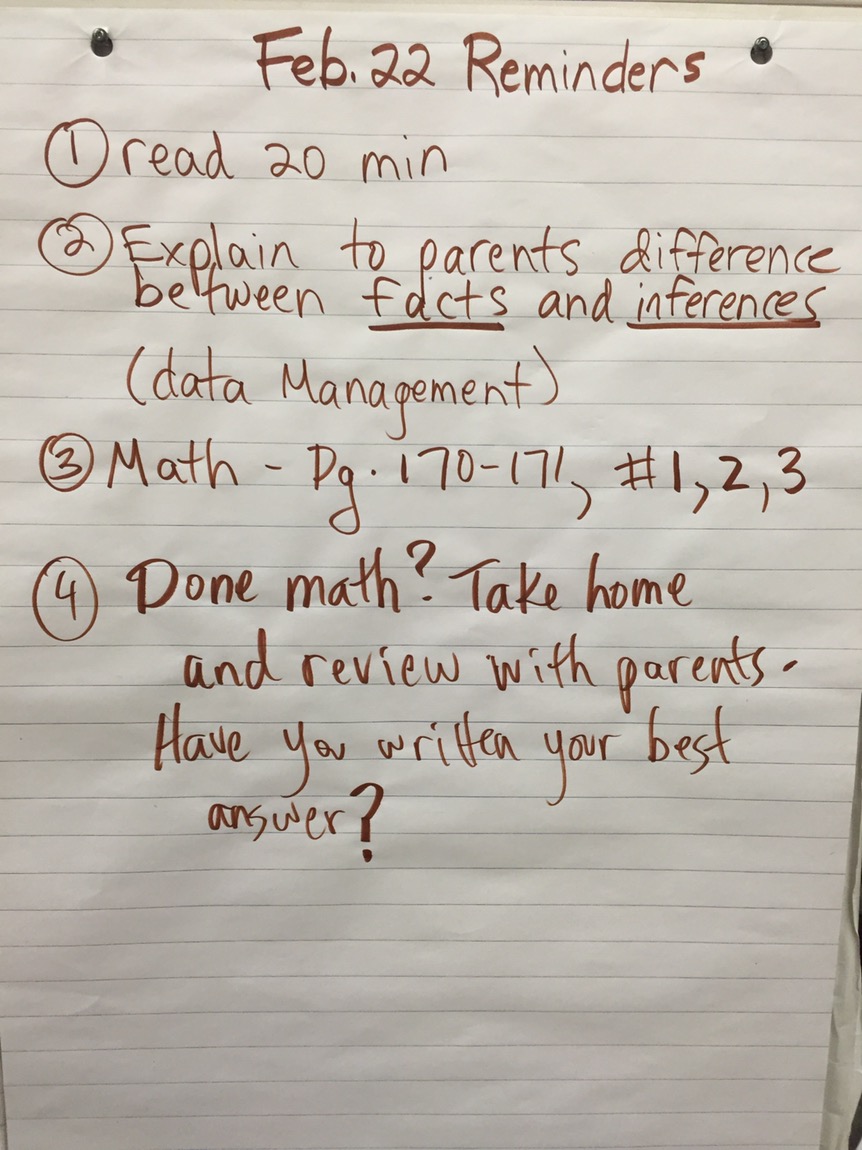 Feb. 22 Reminders
① read 20 min
② Explain to parents difference
between facts and inferences
(data Management)
③ Math - Pg. 170-171, #1, 2, 3
④ Done math? Take home
and review with parents.
Have you written your best
answer?